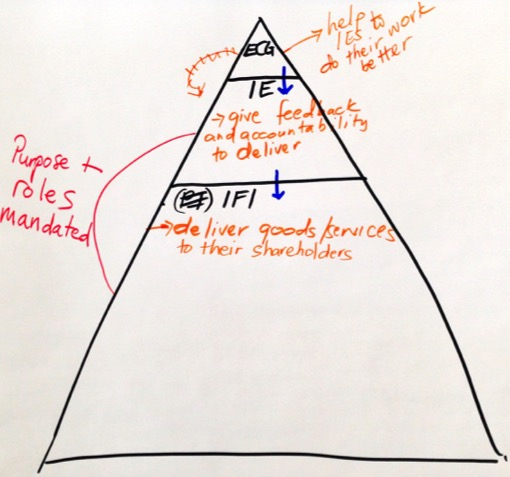 ECG
→ help to
IEs
do their work
better
IE
→ give feedback
and accountability
to deliver
Purpose +
roles
mandated
() IFI
→ deliver goods/services
to their shareholders